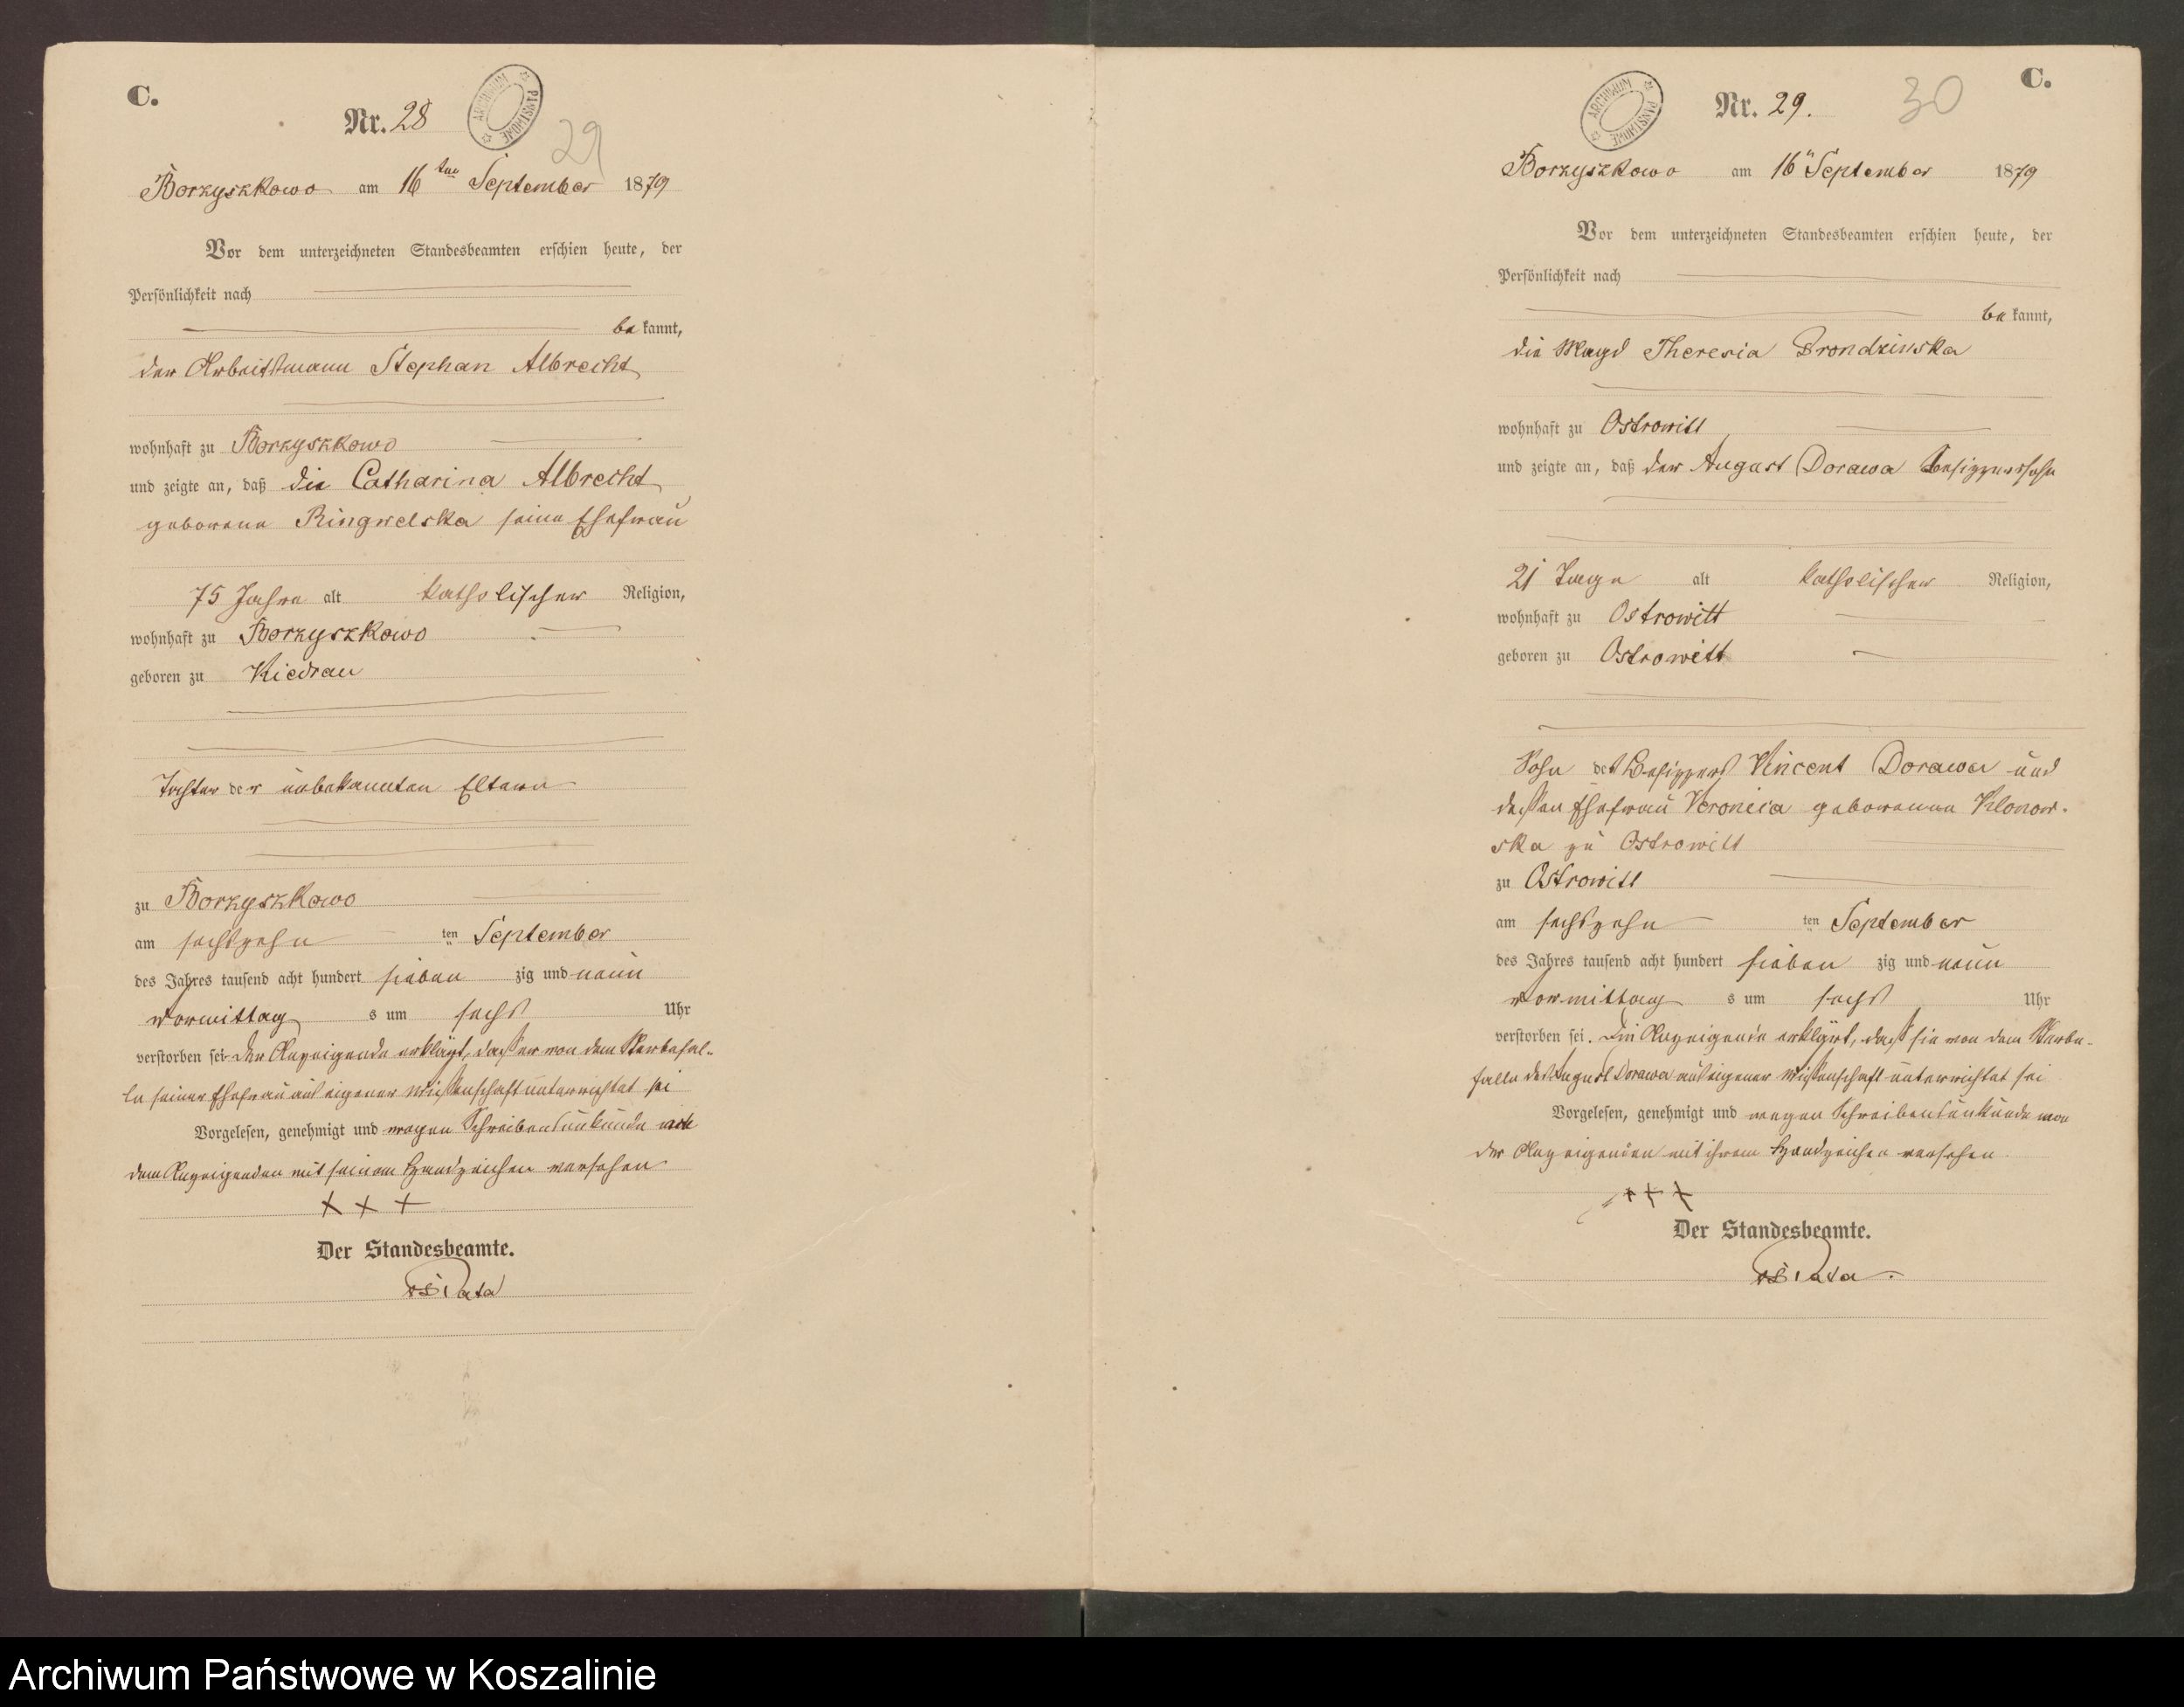 C.
Nr. 28
ARCHIWUM PAŃSTWOWE
29
Borzyszkowo am 16ten September 1879
Vor dem unterzeichneten Standesbeamten erschien heute, der
Persönlichkeit nach
bekannt,
der Arbeitsmann Stephan Albrecht
wohnhaft zu Borzyszkowo
und zeigte an, daß die Catharina Albrecht
geborene Ringwelska seine Ehefrau
75 Jahre alt katholischer Religion,
wohnhaft zu Borzyszkowo
geboren zu Kiedrau
Tochter der unbekannten Eltern
zu Borzyszkowo
am sechszehn ten September
des Jahres tausend acht hundert sieben zig und neun
Vormittag s um sechs Uhr
verstorben sei. Der Anzeigende erklärt, dass er von dem Sterbefal-
le seiner Ehefrau aus eigener Wissenschaft unterrichtet sei
Vorgelesen, genehmigt und wegen Schreibensunkunde
dem Anzeigenden mit seinem Handzeichen versehen
+ + +
Der Standesbeamte.
C.
ARCHIWUM PAŃSTWOWE
Nr. 29.
30
Borzyszkowo am 16" September 1879
Vor dem unterzeichneten Standesbeamten erschien heute, der
Persönlichkeit nach
bekannt,
die Magd Theresia Drondzinska
wohnhaft zu Ostrowitt
und zeigte an, daß der August Dorawa Besitzerssohn
21 Tage alt katholischer Religion,
wohnhaft zu Ostrowitt
geboren zu Ostrowitt
Sohn des Besitzers Vincent Dorawa und
dessen Ehefrau Veronica geborenen Klonow-
ska zu Ostrowitt
zu Ostrowitt
am sechszehn ten September
des Jahres tausend acht hundert sieben zig und neun
Vormittag s um sechs Uhr
verstorben sei. Die Anzeigende erklärt, dass sie von dem Sterbe-
falle des August Dorawa aus eigener Wissenschaft unterrichtet sei
Vorgelesen, genehmigt und wegen Schreibensunkunde von
der Anzeigenden mit ihrem Handzeichen versehen.
+ + +
Der Standesbeamte.
Archiwum Państwowe w Koszalinie